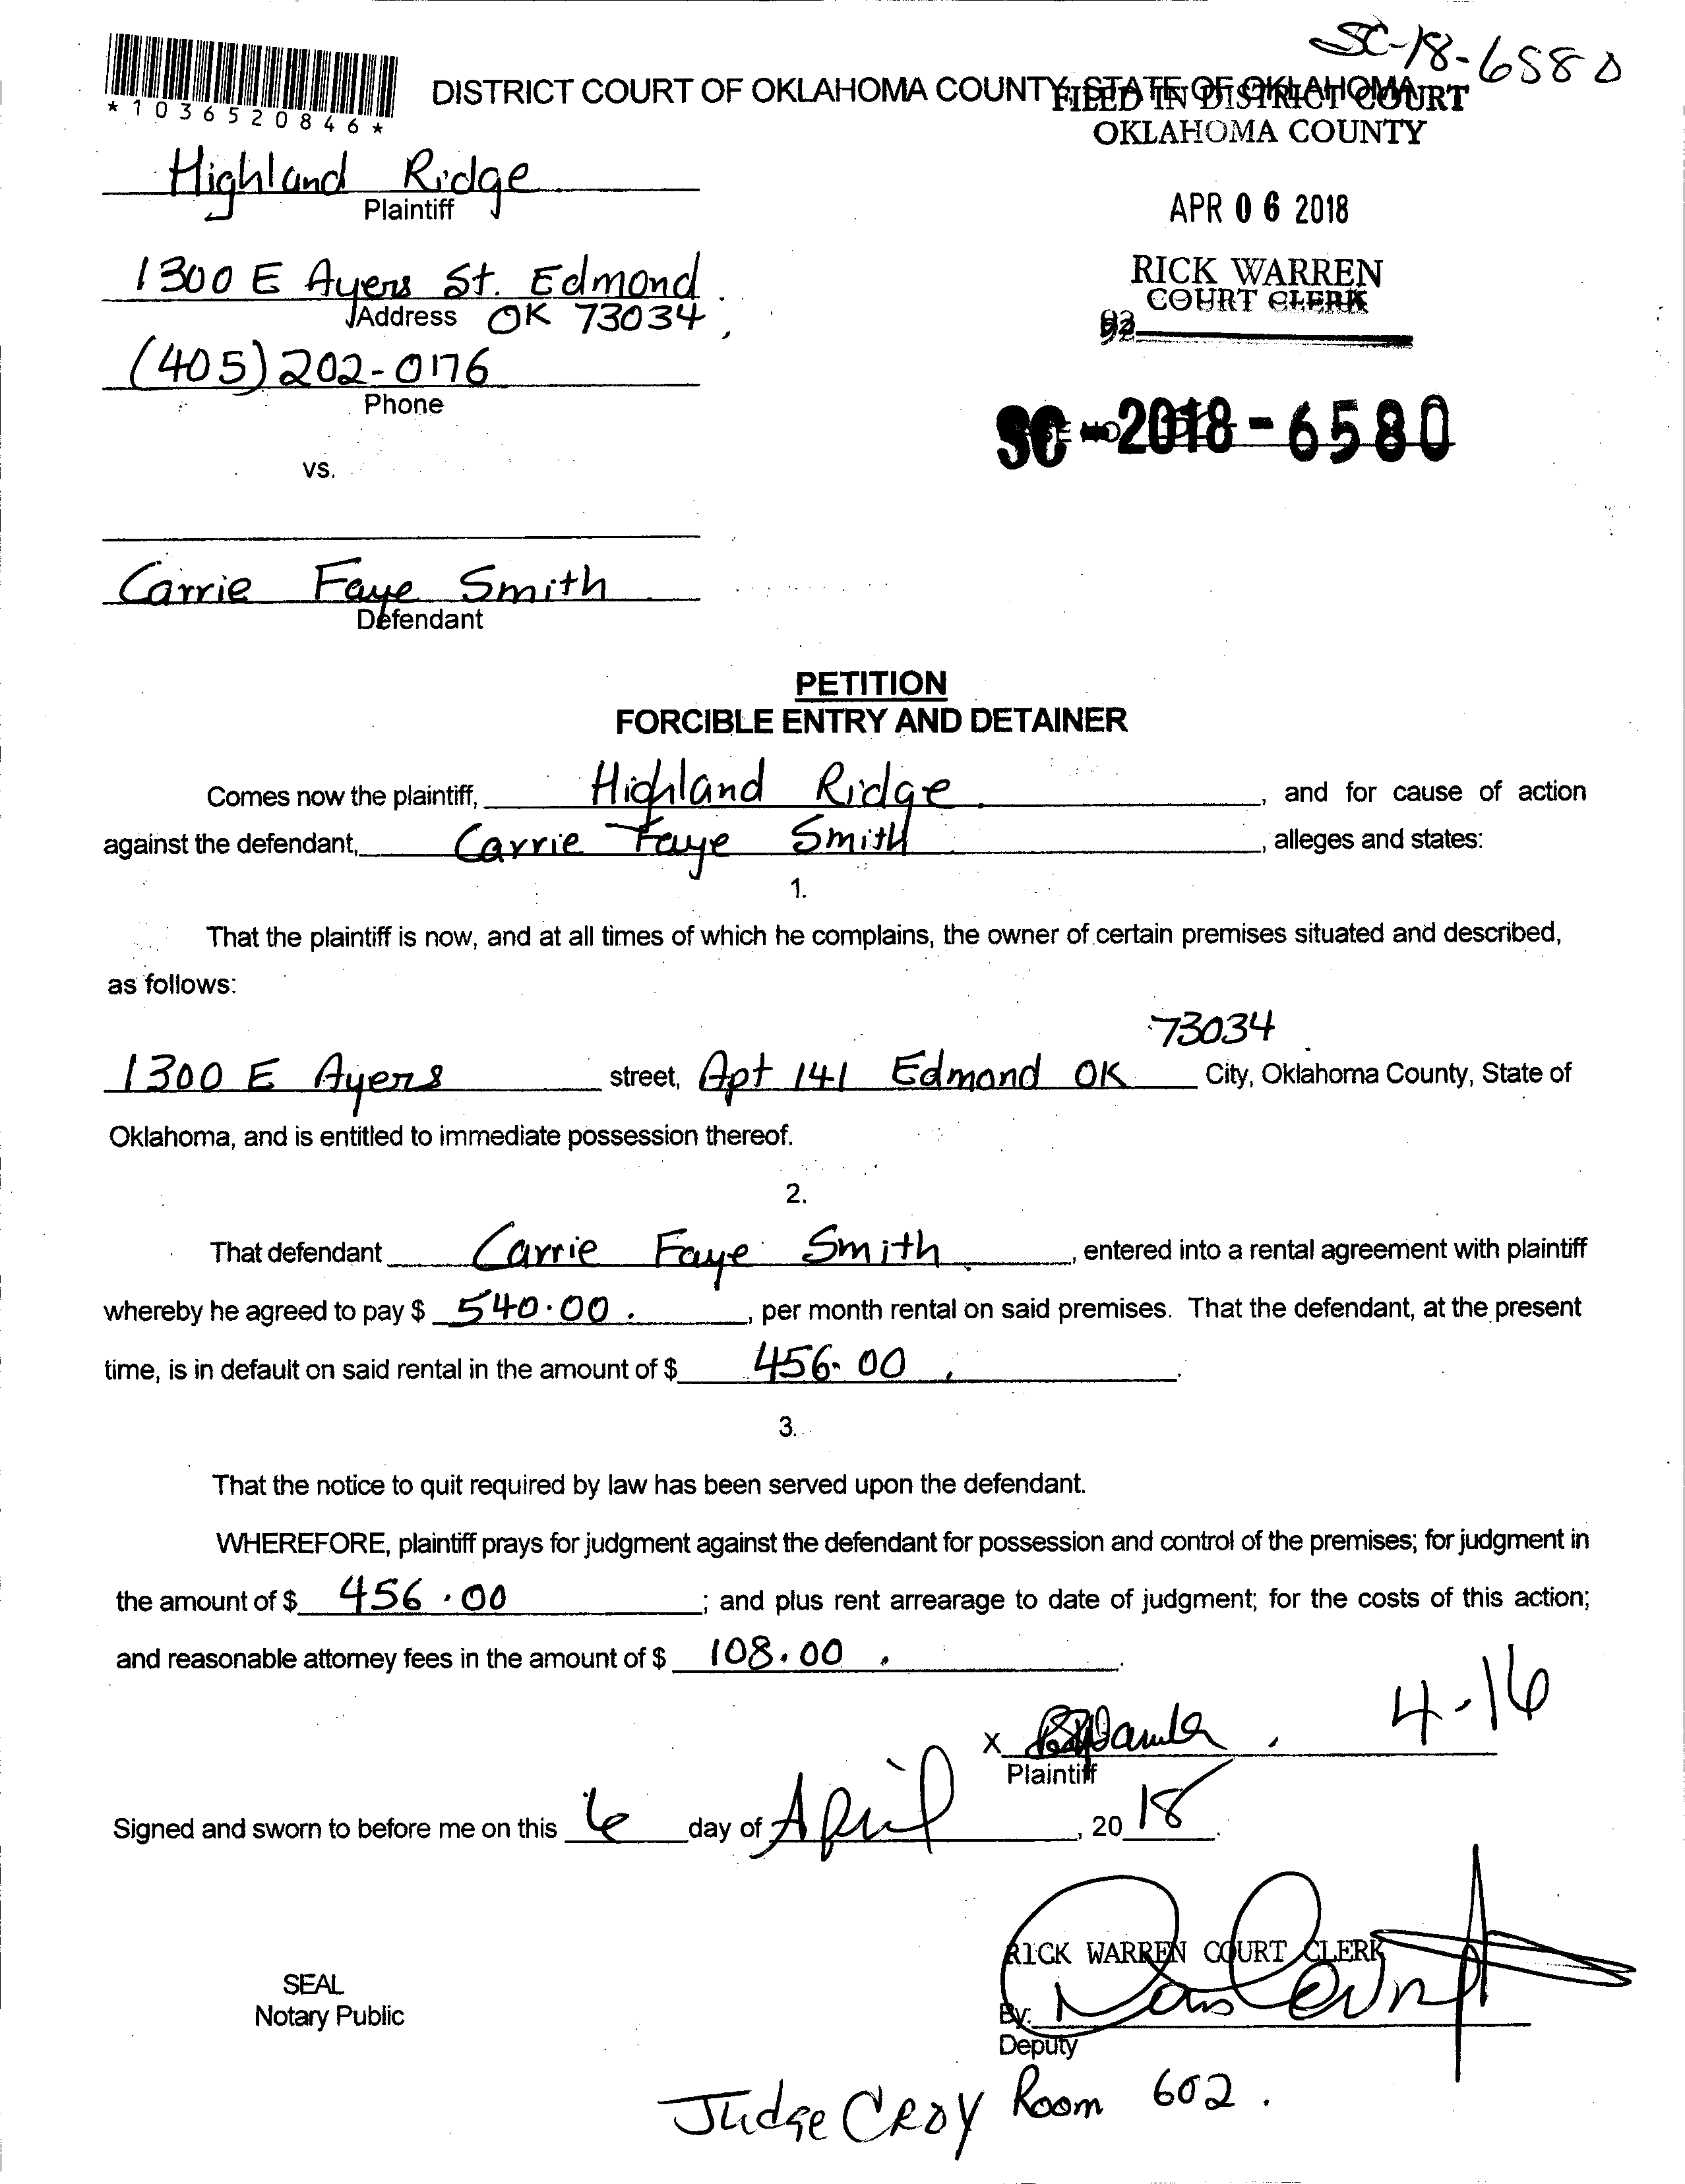 SC-18-6580
*1036520846*
DISTRICT COURT OF OKLAHOMA COUNTY, STATE OF OKLAHOMA
FILED IN DISTRICT COURT
OKLAHOMA COUNTY
Highland Ridge
Plaintiff
APR 06 2018
1300 E Ayers St. Edmond
Address OK 73034
RICK WARREN
COURT CLERK
(405) 202-0176
Phone
SC-2018-6580
vs.
Carrie Faye Smith
Defendant
PETITION
FORCIBLE ENTRY AND DETAINER
Comes now the plaintiff, Highland Ridge, and for cause of action
against the defendant, Carrie Faye Smith, alleges and states:
1.
That the plaintiff is now, and at all times of which he complains, the owner of certain premises situated and described,
as follows:
73034
1300 E Ayers street, Apt 141 Edmond OK City, Oklahoma County, State of
Oklahoma, and is entitled to immediate possession thereof.
2.
That defendant Carrie Faye Smith, entered into a rental agreement with plaintiff
whereby he agreed to pay $ 540.00., per month rental on said premises. That the defendant, at the present
time, is in default on said rental in the amount of $ 456.00.
3.
That the notice to quit required by law has been served upon the defendant.
WHEREFORE, plaintiff prays for judgment against the defendant for possession and control of the premises; for judgment in
the amount of $ 456.00; and plus rent arrearage to date of judgment; for the costs of this action;
and reasonable attorney fees in the amount of $ 108.00.
4-16
X
Plaintiff
Signed and sworn to before me on this 6 day of April, 2018.
RICK WARREN COURT CLERK
SEAL
Notary Public
By:
Deputy
Judge CROY Room 602.